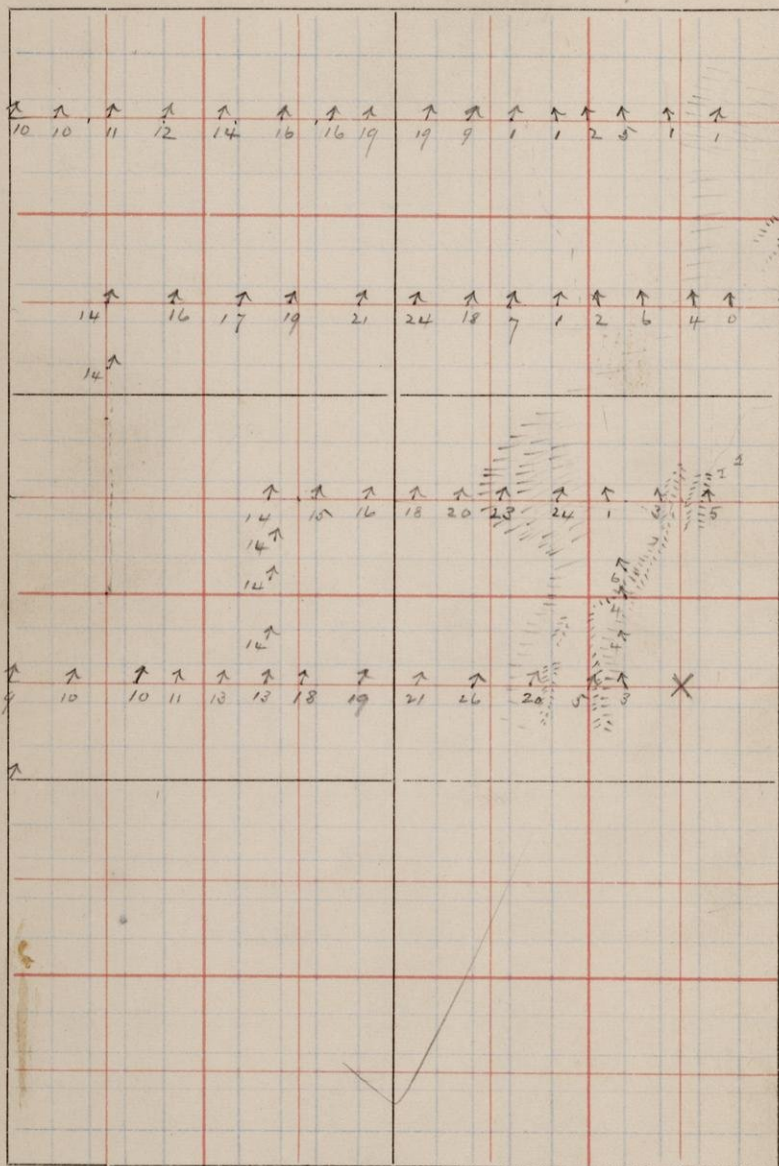 10 10 11 12 14 16 16 19 19 9 1 1 2 5 1 1
14 16 17 19 21 24 18 7 1 2 6 4 0
14
14 15 16 18 20 23 24 1 3 5
14
14
14
9 10 10 11 13 13 18 19 21 26 20 5 3
X